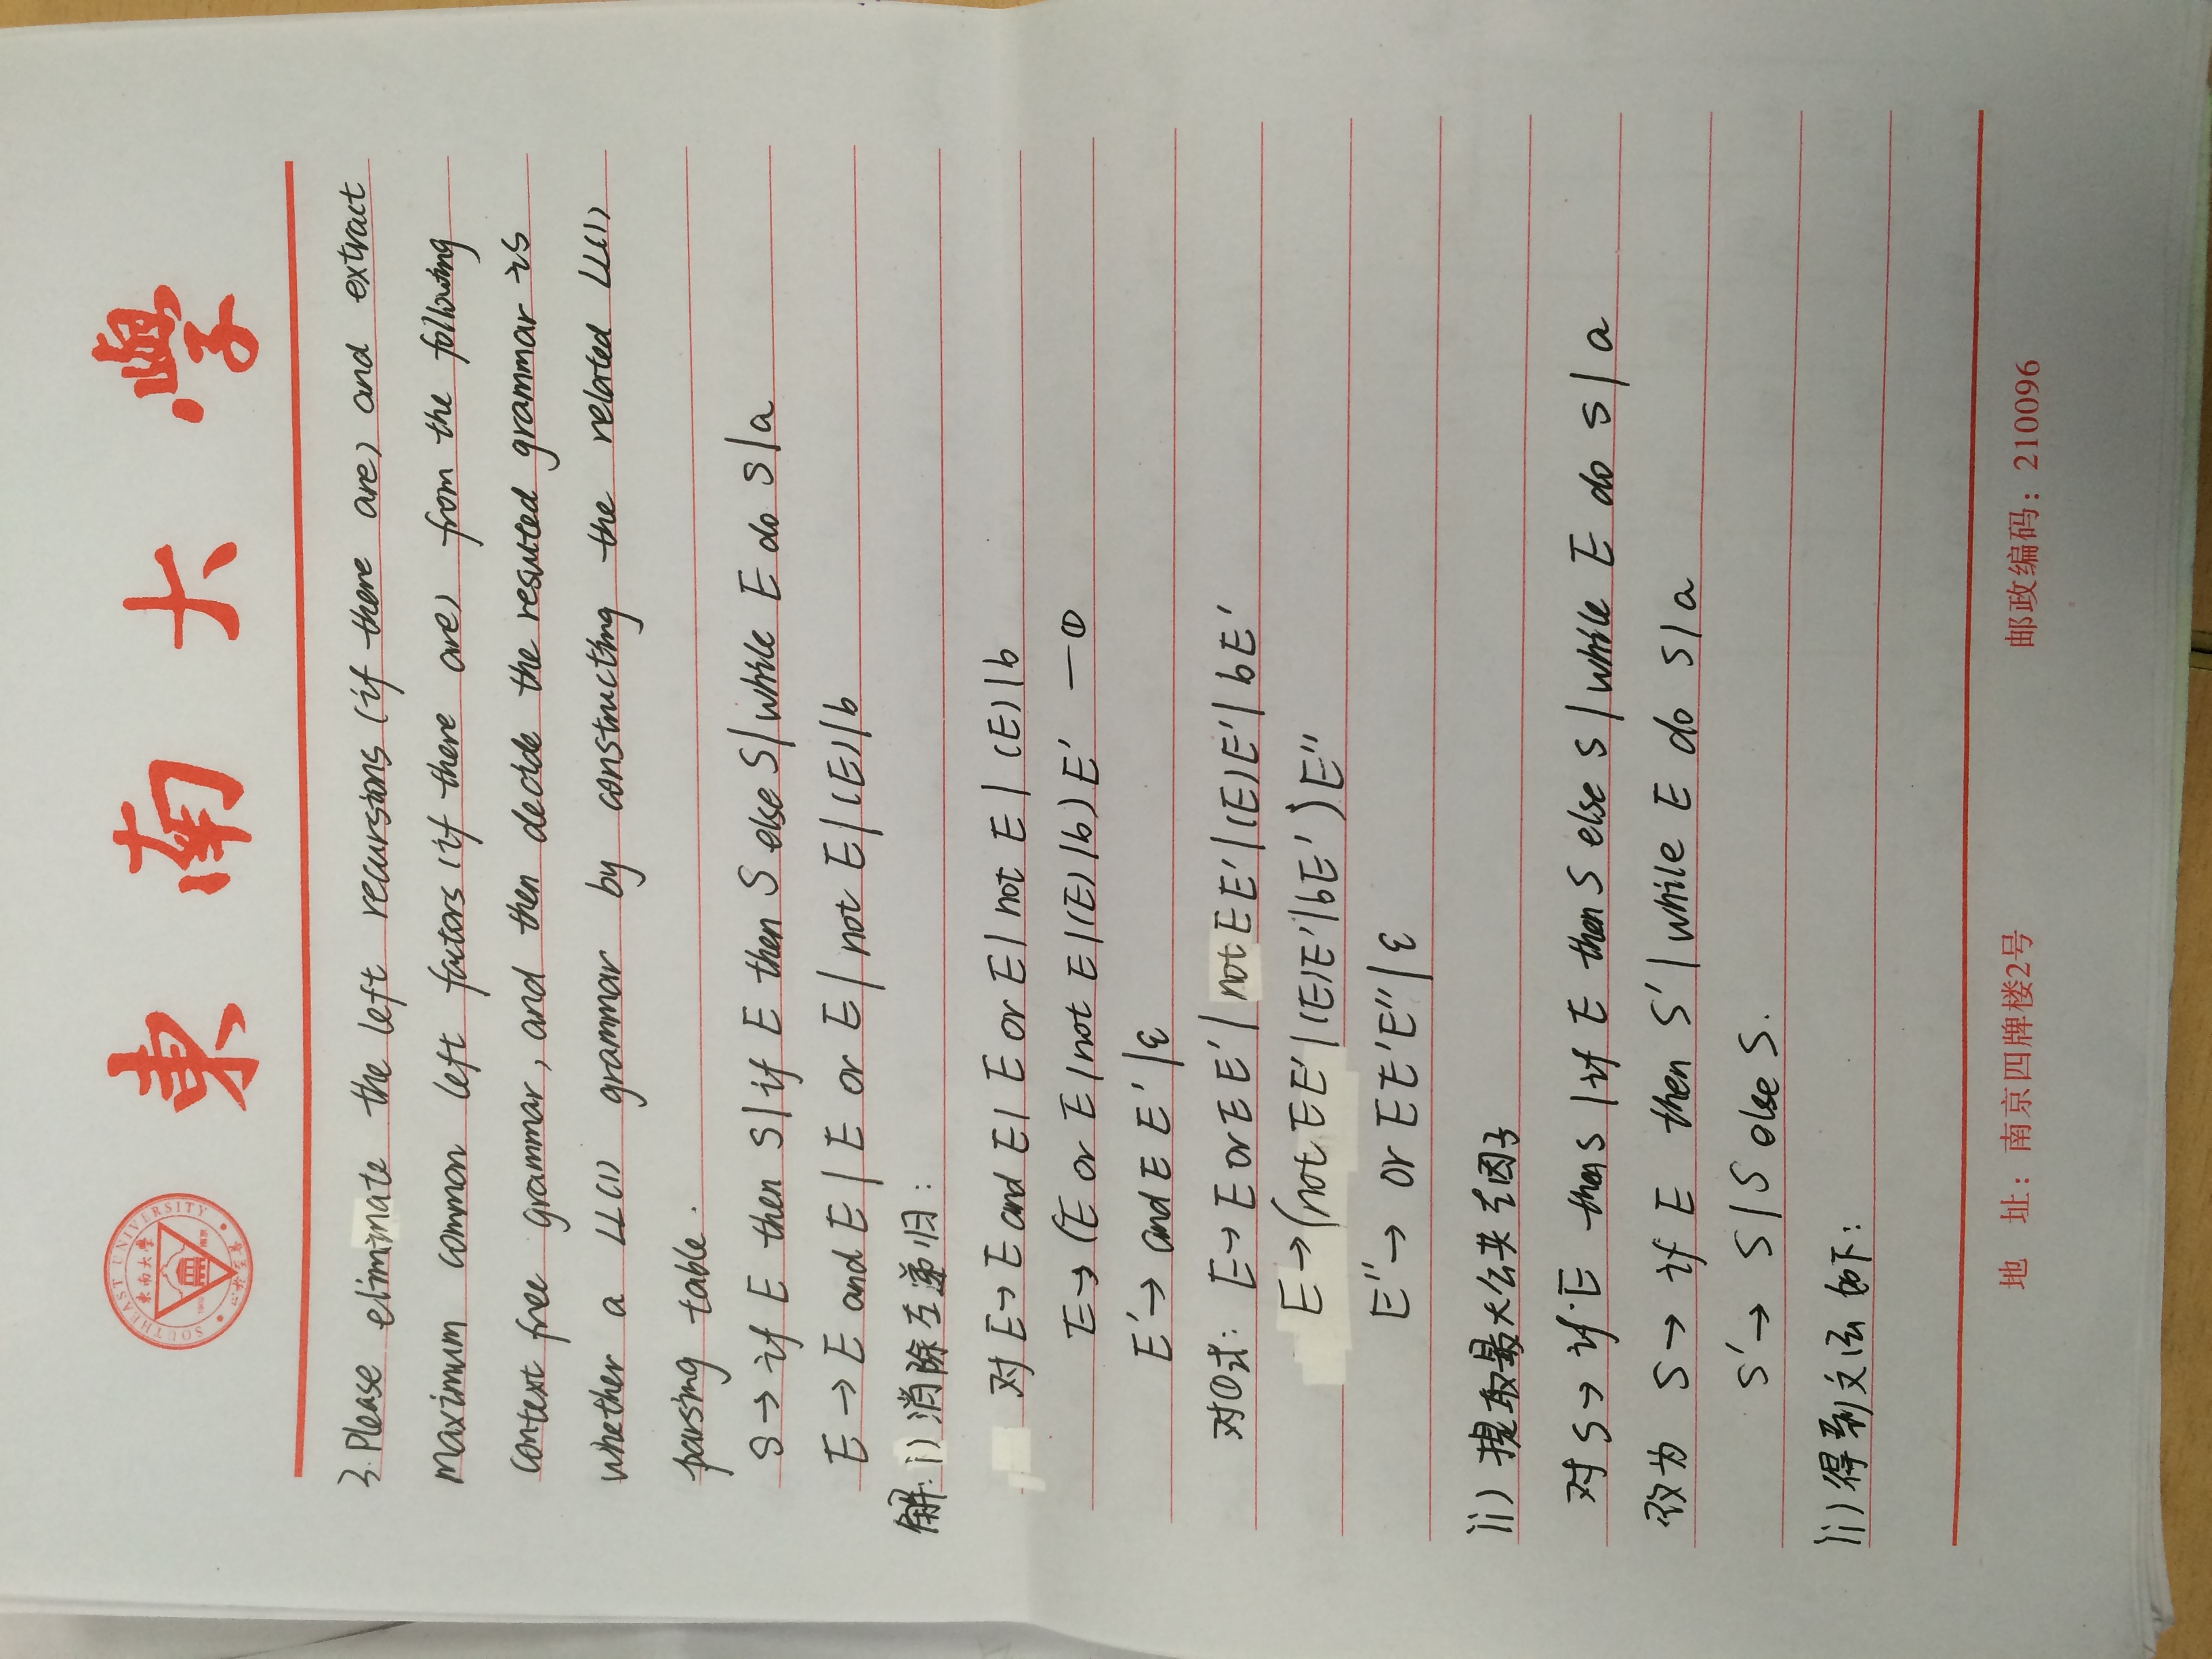 SOUTHEAST UNIVERSITY
東南大學
1902 南京
東南大學
3. Please eliminate the left recursions (if there are) and extract
maximum common left factors (if there are) from the following
context free grammar, and then decide the resulted grammar is
whether a LL(1) grammar by constructing the related LL(1)
parsing table.
S → if E then S | if E then S else S | while E do S | a
E → E and E | E or E | not E | (E) | b
解: i) 消除左递归:
对 E → E and E | E or E | not E | (E) | b
E → (E or E | not E | (E) | b) E' —①
E' → and E E' | ε
对①式: E → E or E E' | not E E' | (E) E' | b E'
E → (not E E' | (E) E' | b E') E''
E'' → or E E' E'' | ε
ii) 提取最大公共左因子
对 S → if E then S | if E then S else S | while E do S | a
改为 S → if E then S' | while E do S | a
S' → S | S else S.
iii) 得到文法如下:
地 址：南京四牌楼2号 邮政编码：210096